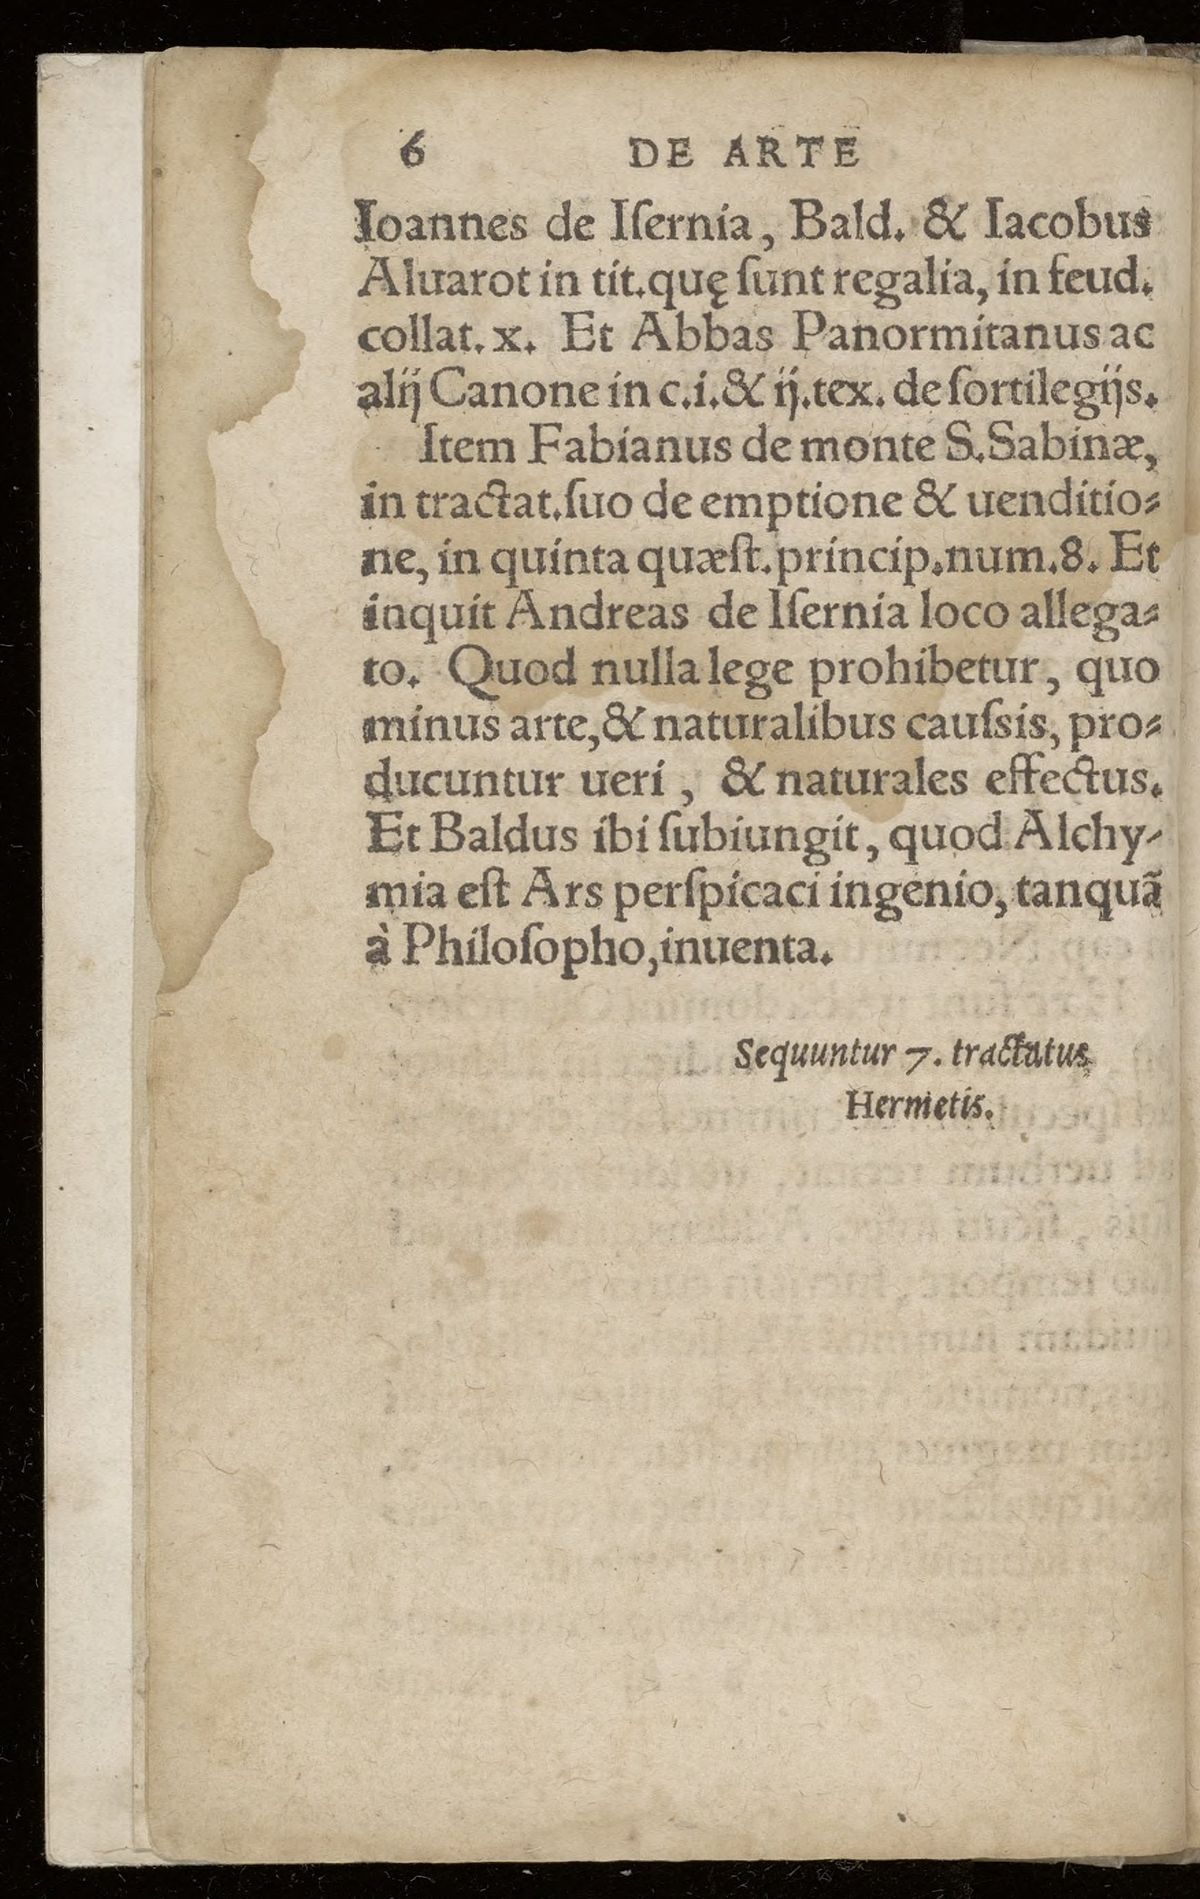 6 DE ARTE
Ioannes de Iſernia, Bald. & Iacobus
Aluarot in tit. quę ſunt regalia, in feud.
collat. x. Et Abbas Panormitanus ac
alij Canone in c. i. & ij. tex. de ſortilegijs.
Item Fabianus de monte S. Sabinæ,
in tractat. ſuo de emptione & uenditio⸗
ne, in quinta quæſt. princip. num. 8. Et
inquit Andreas de Iſernia loco allega⸗
to. Quod nulla lege prohibetur, quo
minus arte, & naturalibus cauſsis, pro⸗
ducuntur ueri, & naturales effectus.
Et Baldus ibi ſubiungit, quod Alchy-
mia eſt Ars perſpicaci ingenio, tanquã
à Philoſopho, inuenta.
Sequuntur 7. tractatus
Hermetis.